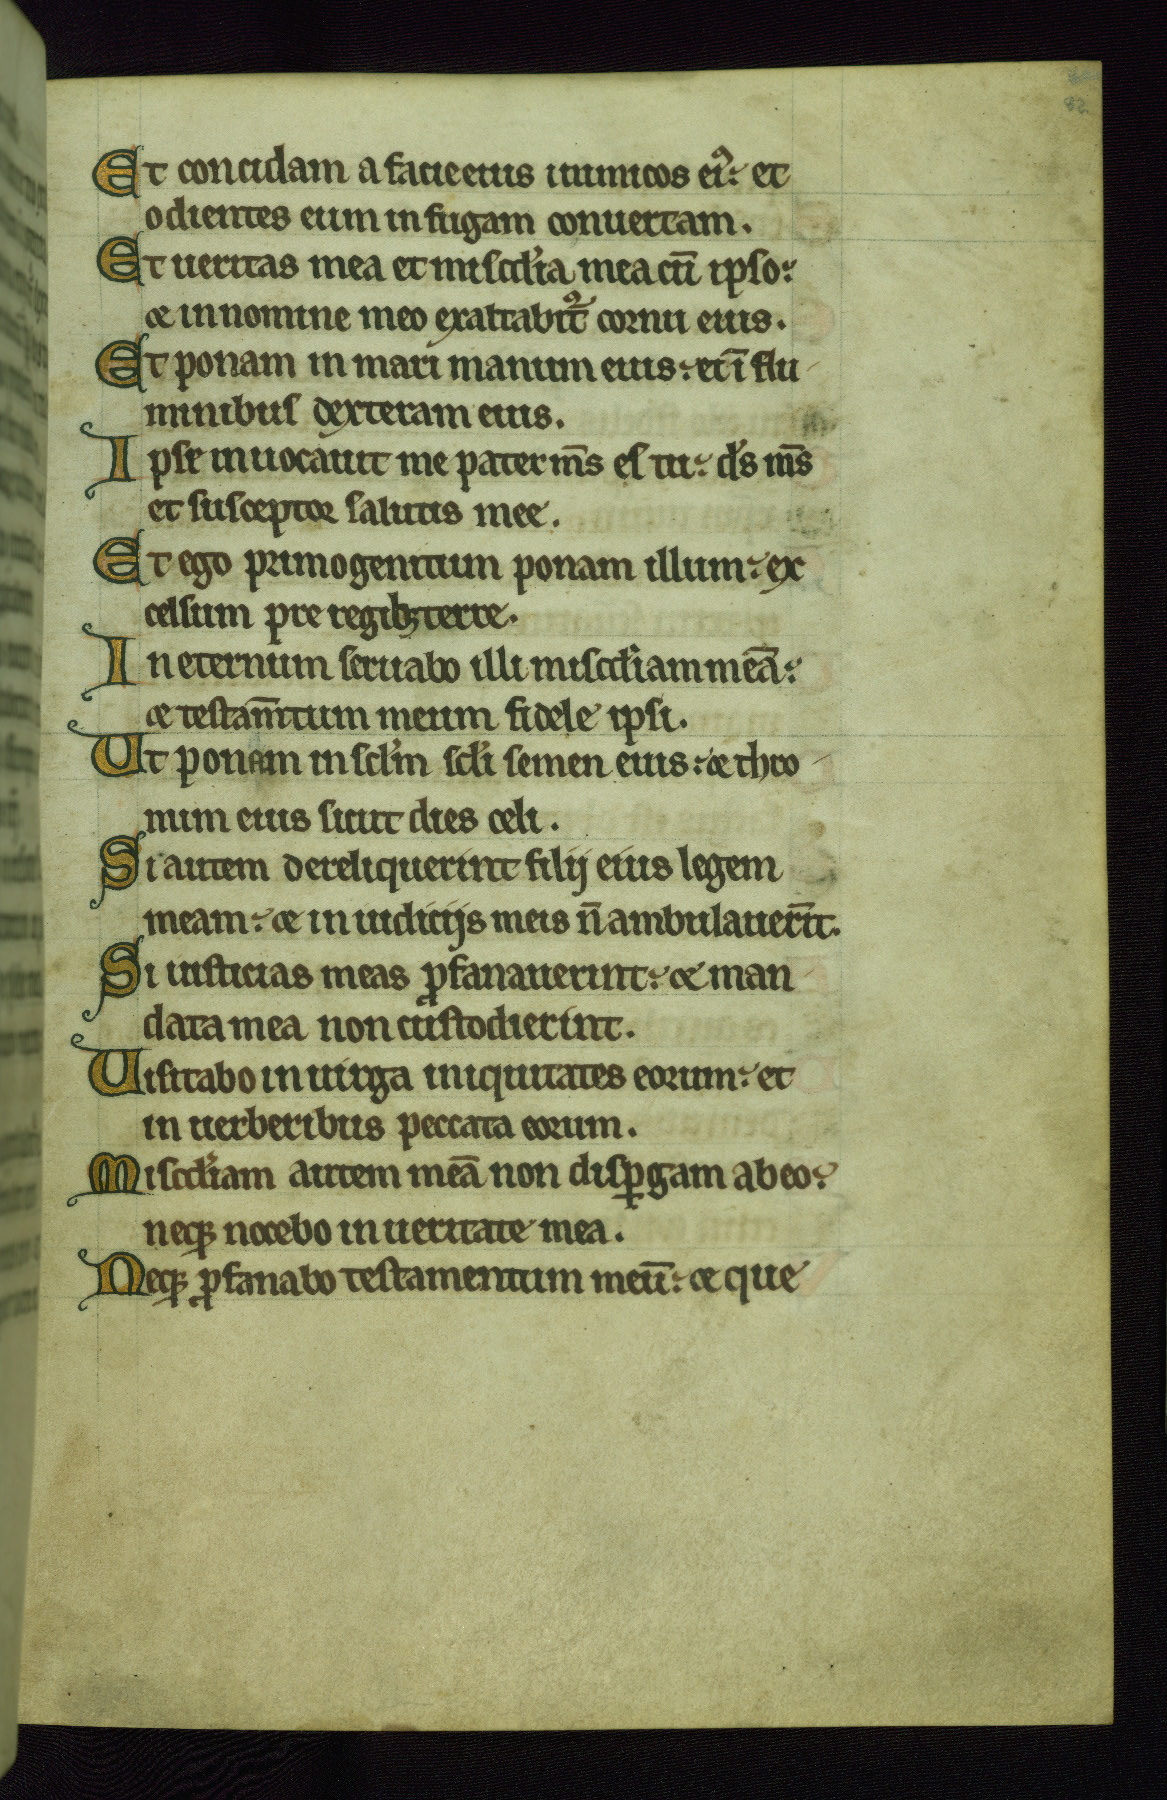 82
Et concidam a facie eius inimicos eiꝰ: et
odientes eum in fugam conuertam.
Et ueritas mea et miscd'ia mea cū ipso:
⁊ in nomine meo exaltabit᷒ cornu eius.
Et ponam in mari manum eius: et ī flu
minibus dexteram eius.
Ipse inuocauit me pater m̄s es tu: d's m̄s
et susceptor salutis mee.
Et ego primogenitum ponam illum: ex
celsum pre regibꝫ terre.
In eternum seruabo illi miscd'iam meā:
⁊ testam̄tum meum fidele ipsi.
Ut ponam in scl'm scl'i semen eius: ⁊ thro
num eius sicut dies celi.
Si autem dereliquerint filij eius legem
meam: ⁊ in iudicijs meis n̄ ambulauer̄it.
Si iusticias meas ꝓfanauerint: ⁊ man
data mea non custodierint.
Uisitabo in uirga iniquitates eorum: et
in uerberibus peccata eorum.
Miscd'iam autem meā non disꝑgam ab eo:
neqꝫ nocebo in ueritate mea.
Neqꝫ ꝓfanabo testamentum meū: ⁊ que